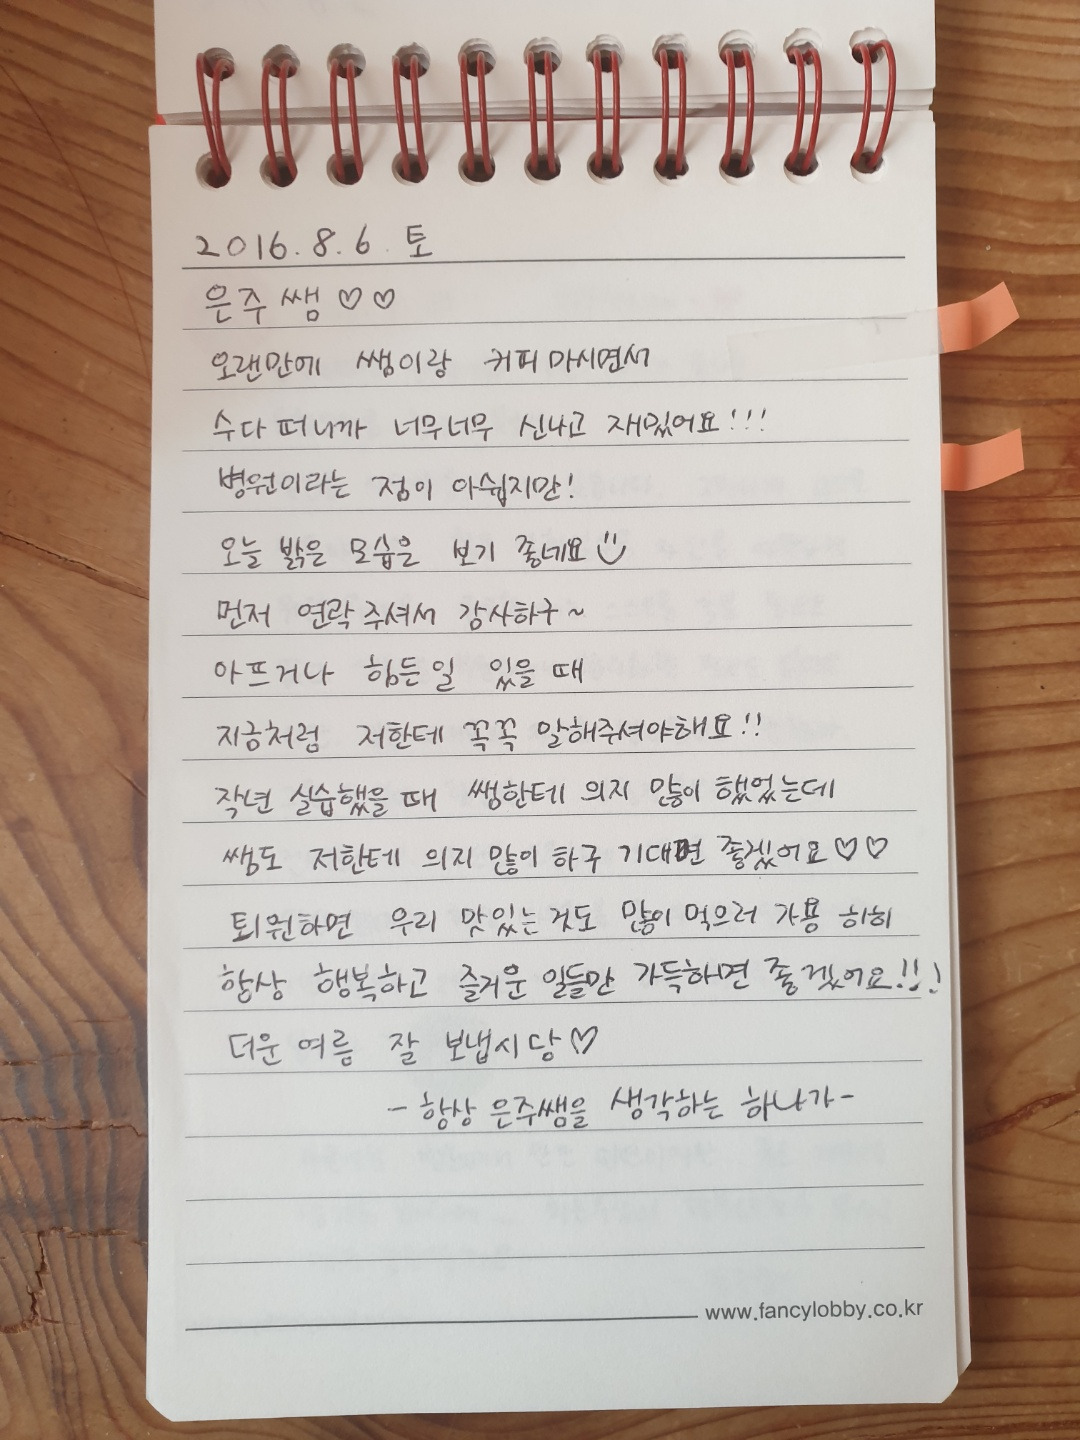 2016.8.6. 토
은주쌤 ♡♡
오랜만에 쌤이랑 커피마시면서
수다떠니까 너무너무 신나고 재밌어요!!!
병원이라는 점이 아쉽지만!
오늘 밝은 모습은 보기 좋네요
먼저 연락주셔서 감사하구~
아프거나 힘든일 있을때
지금처럼 저한테 꼭꼭 말해주셔야해요!!
작년 실습했을때 쌤한테 의지 많이 했었는데
쌤도 저한테 의지 많이 하구 기대면 좋겠어요♡♡
퇴원하면 우리 맛있는것도 많이먹으러 가용 히히
항상 행복하고 즐거운 일들만 가득하면 좋겠어요!!!
더운여름 잘 보냅시당♡
- 항상 은주쌤을 생각하는 하나가 -
www.fancylobby.co.kr